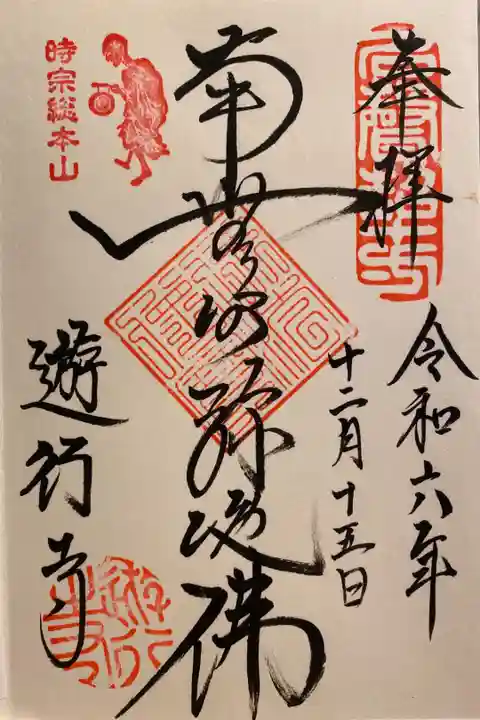 奉拝
令和六年
十二月十五日
南無阿弥陀佛
時宗総本山
遊行寺